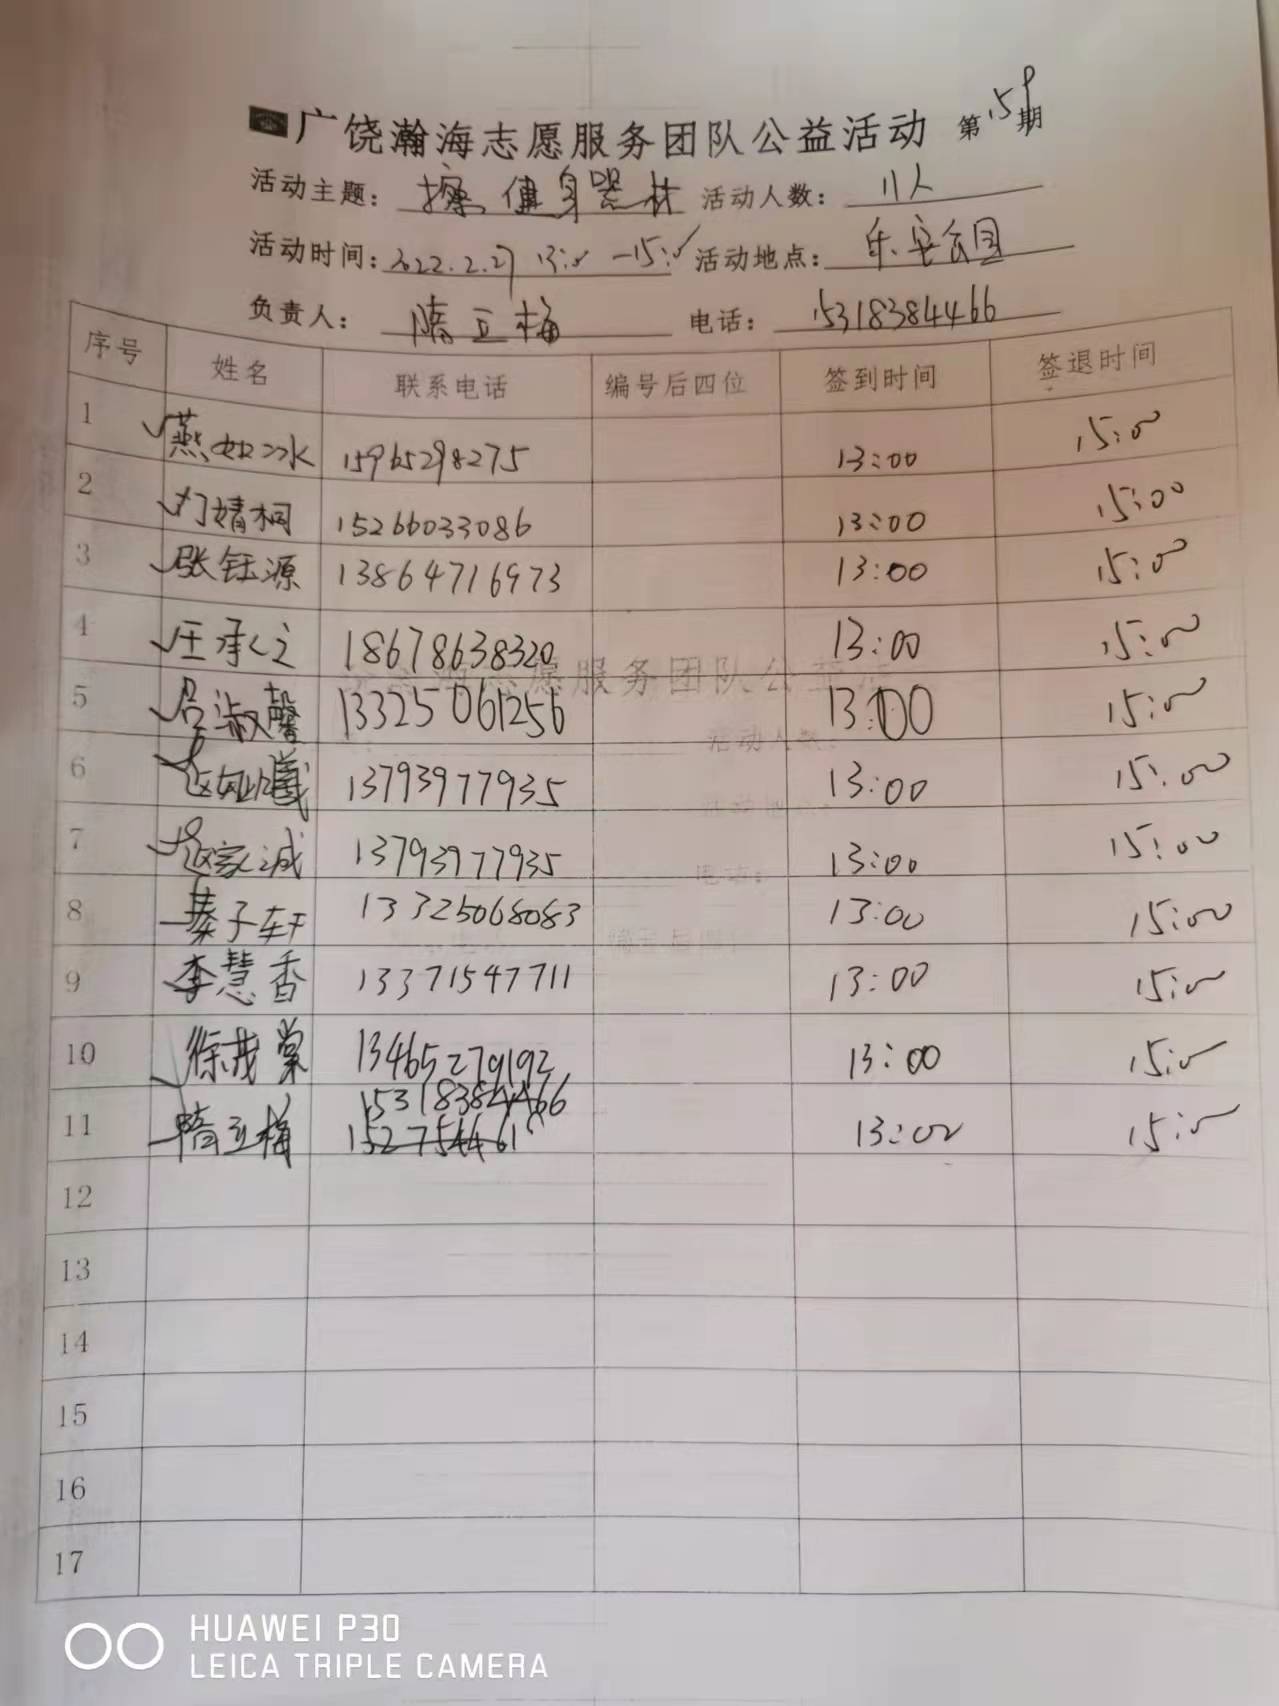 广饶瀚海志愿服务团队公益活动 第159期
活动主题: 擦健身器材 活动人数: 11人
活动时间: 2022.2.27 13:00-15:00 活动地点: 乐安公园
负责人: 隋立梅 电话: 15318384466
序号 姓名 联系电话 编号后四位 签到时间 签退时间
1 燕如冰 15965298275 13:00 15:00
2 婧桐 15266033086 13:00 15:00
3 张钰源 13864716973 13:00 15:00
4 王承 18678638320 13:00 15:00
5 吕淑馨 13325061256 13:00 15:00
6 赵 13793977935 13:00 15:00
7 赵家诚 13793977935 13:00 15:00
8 綦子轩 13325068083 13:00 15:00
9 李慧香 13371547711 13:00 15:00
10 徐茂棠 13465279192 13:00 15:00
15318384466
11 隋立梅 13:00 15:00
12
13
14
15
16
17
HUAWEI P30
LEICA TRIPLE CAMERA